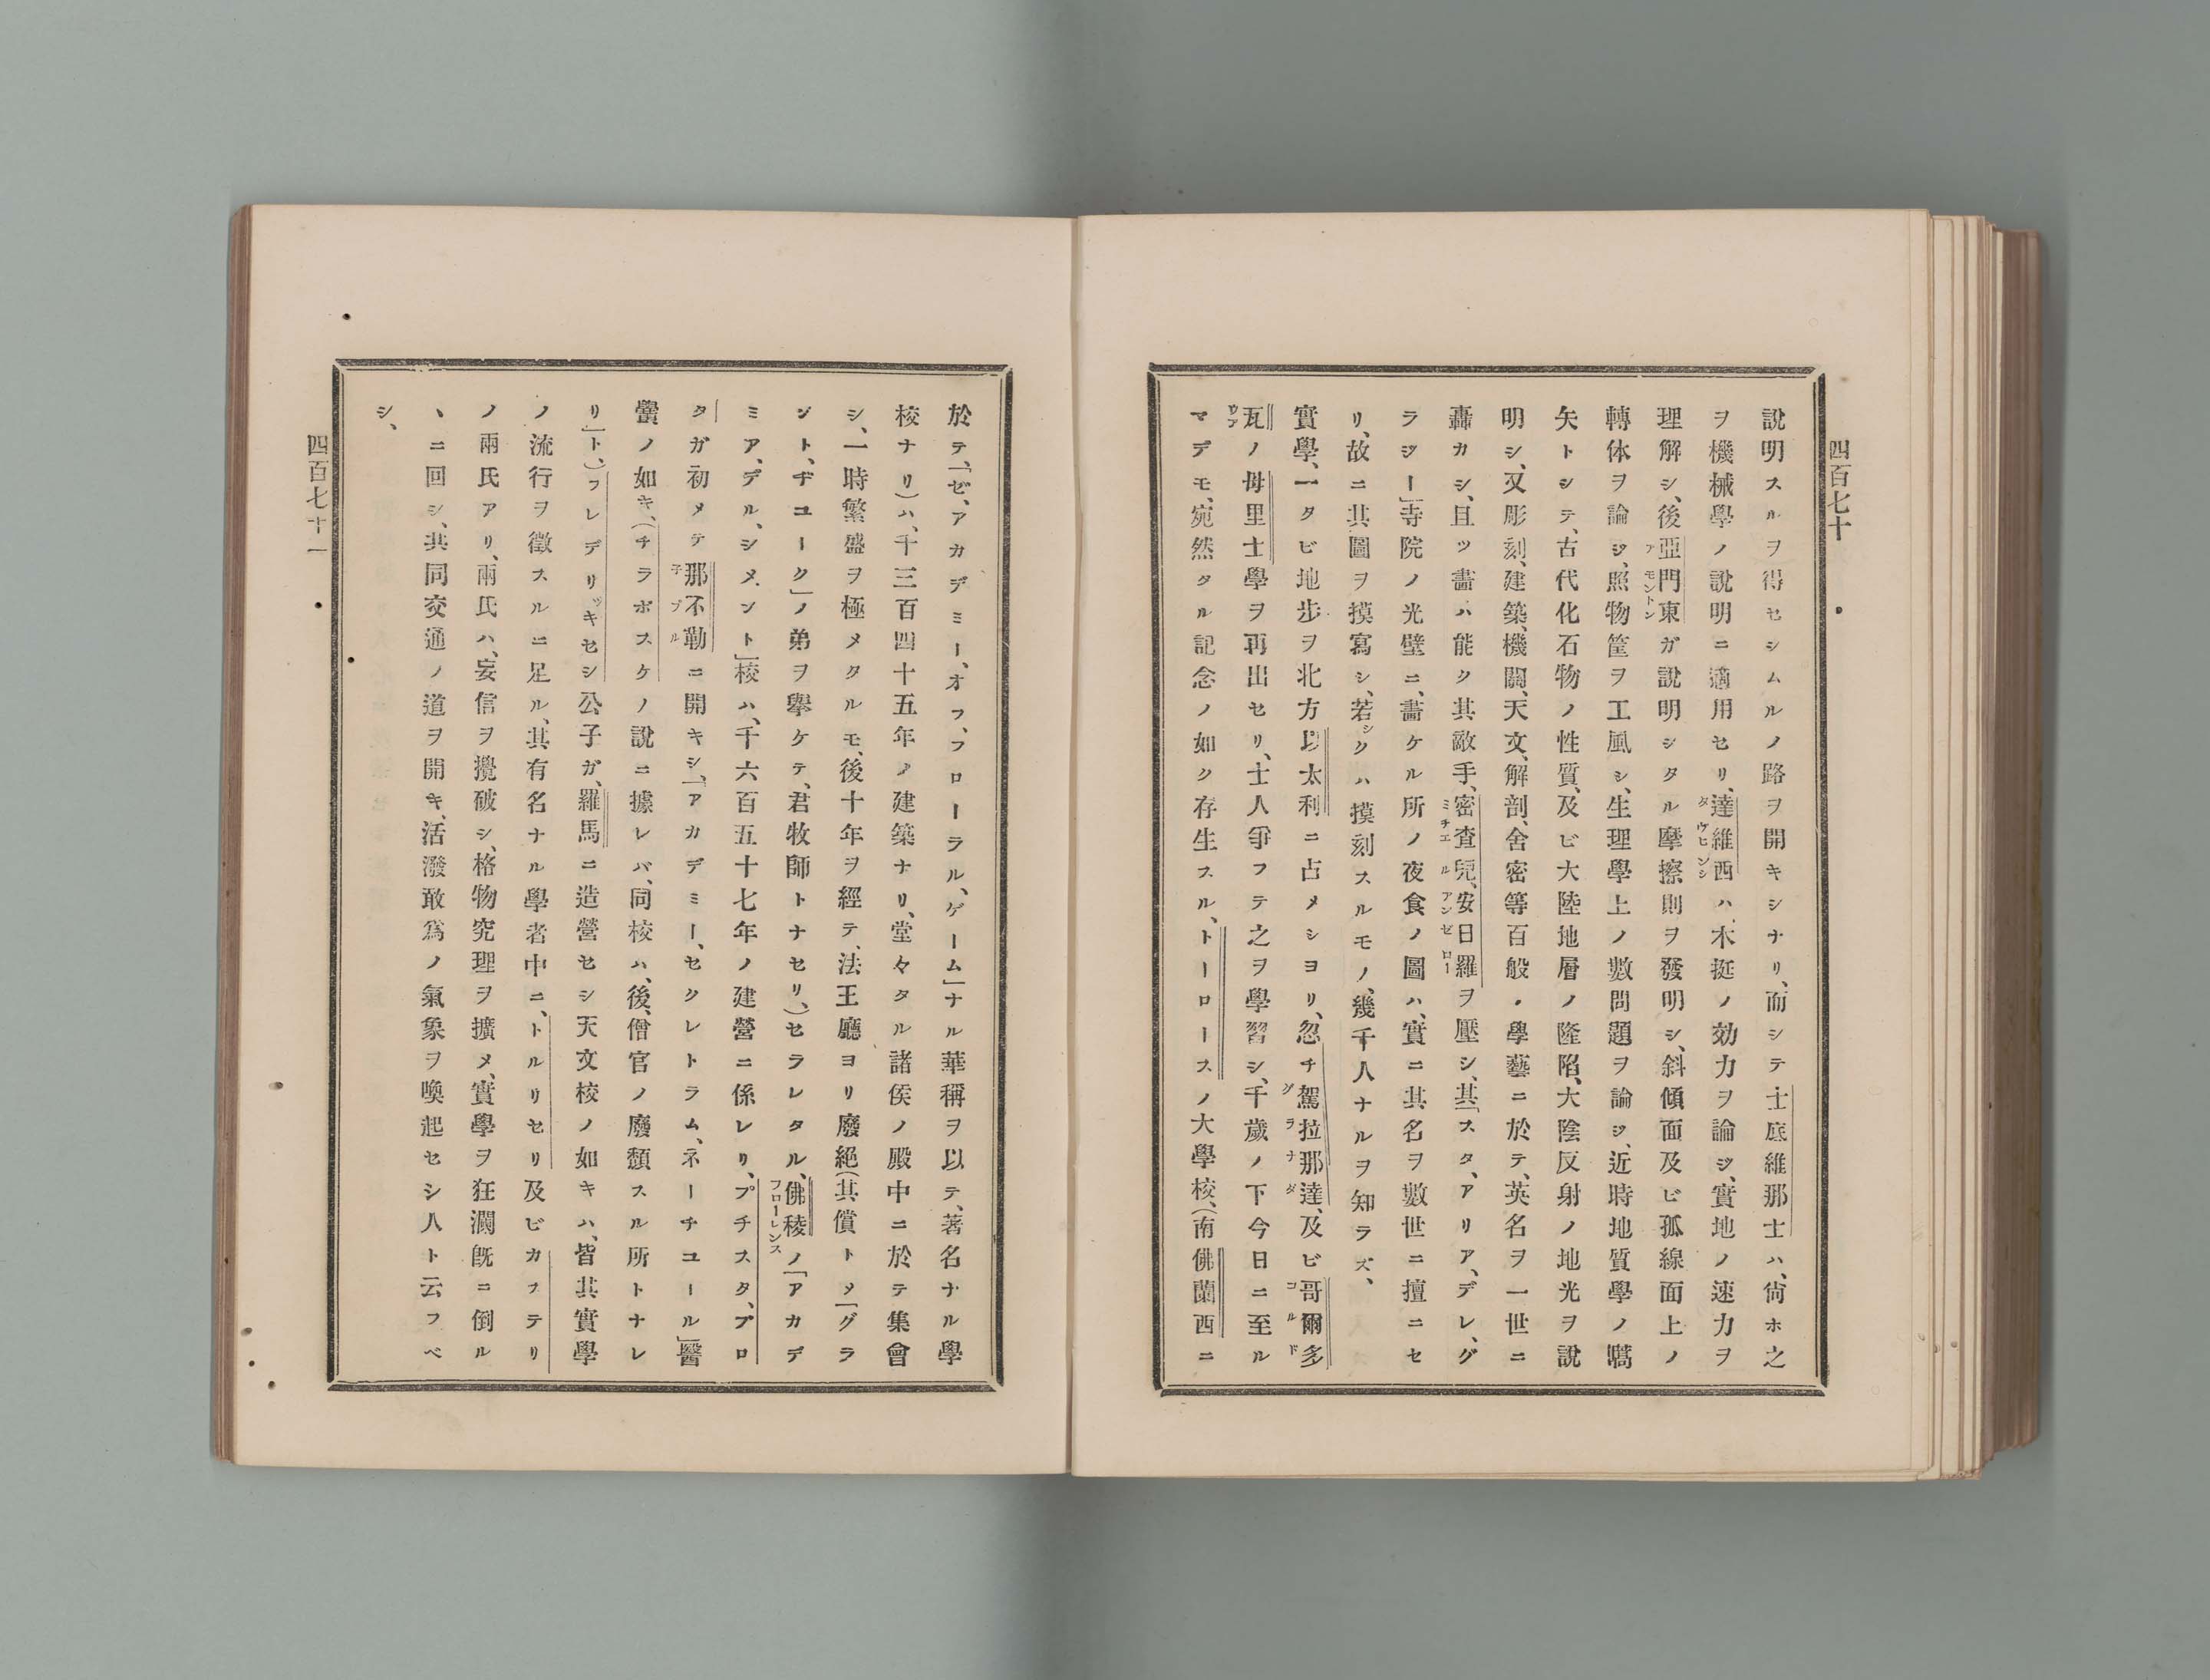 四百七十
說明スルヲ得セシムルノ路ヲ開キシナリ、而シテ士底維那士ハ、尙ホ之
ヲ機械學ノ說明ニ適用セリ、達維西ハ、木挺ノ効力ヲ論ジ、實地ノ速力ヲ
理解シ、後亞門東ガ說明シタル摩擦則ヲ發明シ、斜傾面及ビ孤線面上ノ
轉体ヲ論ジ、照物筐ヲ工風シ、生理學上ノ數問題ヲ論ジ、近時地質學ノ嚆
矢トシテ、古代化石物ノ性質、及ビ大陸地層ノ隆陷、大陰反射ノ地光ヲ說
明シ、又彫刻、建築、機關、天文、解剖、舍密等百般ノ學藝ニ於テ、英名ヲ一世ニ
轟カシ、且ツ畵ハ能ク其敵手、密査兒、安日羅ヲ壓シ、其「スタ、アリア、デレ、グ
ラジー」寺院ノ光壁ニ、畵ケル所ノ夜食ノ圖ハ、實ニ其名ヲ數世ニ擅ニセ
リ、故ニ其圖ヲ摸寫シ、若シクハ摸刻スルモノ、幾千人ナルヲ知ラズ、
實學、一タビ地步ヲ北方以太利ニ占メシヨリ、忽チ駕拉那達、及ビ哥爾多
瓦ノ母里士學ヲ再出セリ、士人爭フテ之ヲ學習シ、千歲ノ下今日ニ至ル
マデモ、宛然タル記念ノ如ク存生スル、トーロースノ大學校、(南佛蘭西ニ
於テ、「ゼ、アカデミー、オフ、フローラル、ゲーム」ナル華稱ヲ以テ、著名ナル學
校ナリ)ハ、千三百四十五年ノ建築ナリ、堂々タル諸侯ノ殿中ニ於テ集會
シ、一時繁盛ヲ極メタルモ、後十年ヲ經テ、法王廳ヨリ廢絕(其償トメ「グラ
ント、ヂユーク」ノ弟ヲ擧ケテ、君牧師トナセリ、)セラレタル、佛稜ノ「アカデ
ミア、デル、シメント」校ハ、千六百五十七年ノ建營ニ係レリ、プチスタ、プロ
タガ初メテ那不勒ニ開キシ、「アカデミー、セクレトラム、ネーチユール」醫
黌ノ如キ、(チラボスケノ說ニ據レバ、同校ハ、後、僧官ノ廢頽スル所トナレ
リ」ト、)フレデリツキセシ公子ガ、羅馬ニ造營セシ天文校ノ如キハ、皆其實學
ノ流行ヲ徵スルニ足ル、其有名ナル學者中ニ、トルリセリ及ビカフテリ
ノ兩氏アリ、兩氏ハ、妄信ヲ攪破シ、格物究理ヲ擴メ、實學ヲ狂瀾既ニ倒ル
ヽニ回シ、共同交通ノ道ヲ開キ、活潑敢爲ノ氣象ヲ喚起セシ人ト云フベ
シ、
四百七十一